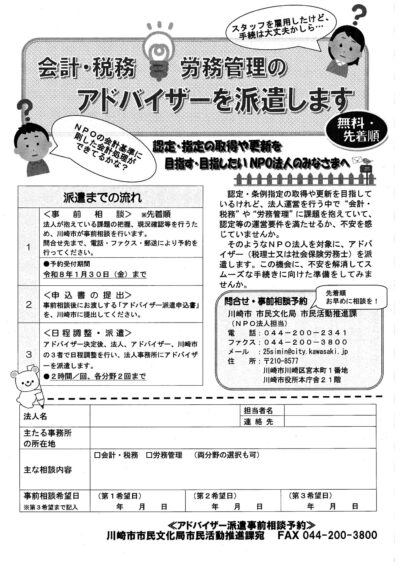 スタッフを雇用したけど、
手続は大丈夫かしら…
会計・税務 労務管理の
アドバイザーを派遣します
無料・
先着順
NPOの会計基準に
則した会計処理が
できてるかな？
認定・指定の取得や更新を
目指す・目指したいNPO法人のみなさまへ
派遣までの流れ
1
＜事前相談＞ ※先着順
法人が抱えている課題の把握、現況確認等を行うた
め、川崎市が事前相談を行います。
問合せ先まで、電話・ファクス・郵送により予約を
行ってください。
●予約受付期間
令和8年1月30日（金）まで
2
＜申込書の提出＞
事前相談後にお渡しする「アドバイザー派遣申込書」
を、川崎市に提出してください。
3
＜日程調整・派遣＞
アドバイザー決定後、法人、アドバイザー、川崎市
の3者で日程調整を行い、法人事務所にアドバイザ
ーを派遣します。
●2時間／回、各分野2回まで
認定・条例指定の取得や更新を目指して
いるけれど、法人運営を行う中で“会計・
税務”や“労務管理”に課題を抱えていて、
認定等の運営要件を満たせるか、不安を感
じていませんか。
そのようなNPO法人を対象に、アドバ
イザー（税理士又は社会保険労務士）を派
遣します。この機会に、不安を解消してス
ムーズな手続きに向けた準備をしてみませ
んか。
問合せ・事前相談予約
先着順
お早めに相談を！
川崎市 市民文化局 市民活動推進課
（NPO法人担当）
電話：044-200-2341
ファクス：044-200-3800
メール：25simin@city.kawasaki.jp
住所：〒210-8577
川崎市川崎区宮本町1番地
川崎市役所本庁舎21階
法人名
担当者名
連絡先
主たる事務所
の所在地
主な相談内容
□会計・税務 □労務管理 （両分野の選択も可）
事前相談希望日
※第3希望まで記入
（第1希望日）
年 月 日
（第2希望日）
年 月 日
（第3希望日）
年 月 日
≪アドバイザー派遣事前相談予約≫
川崎市市民文化局市民活動推進課宛 FAX 044-200-3800